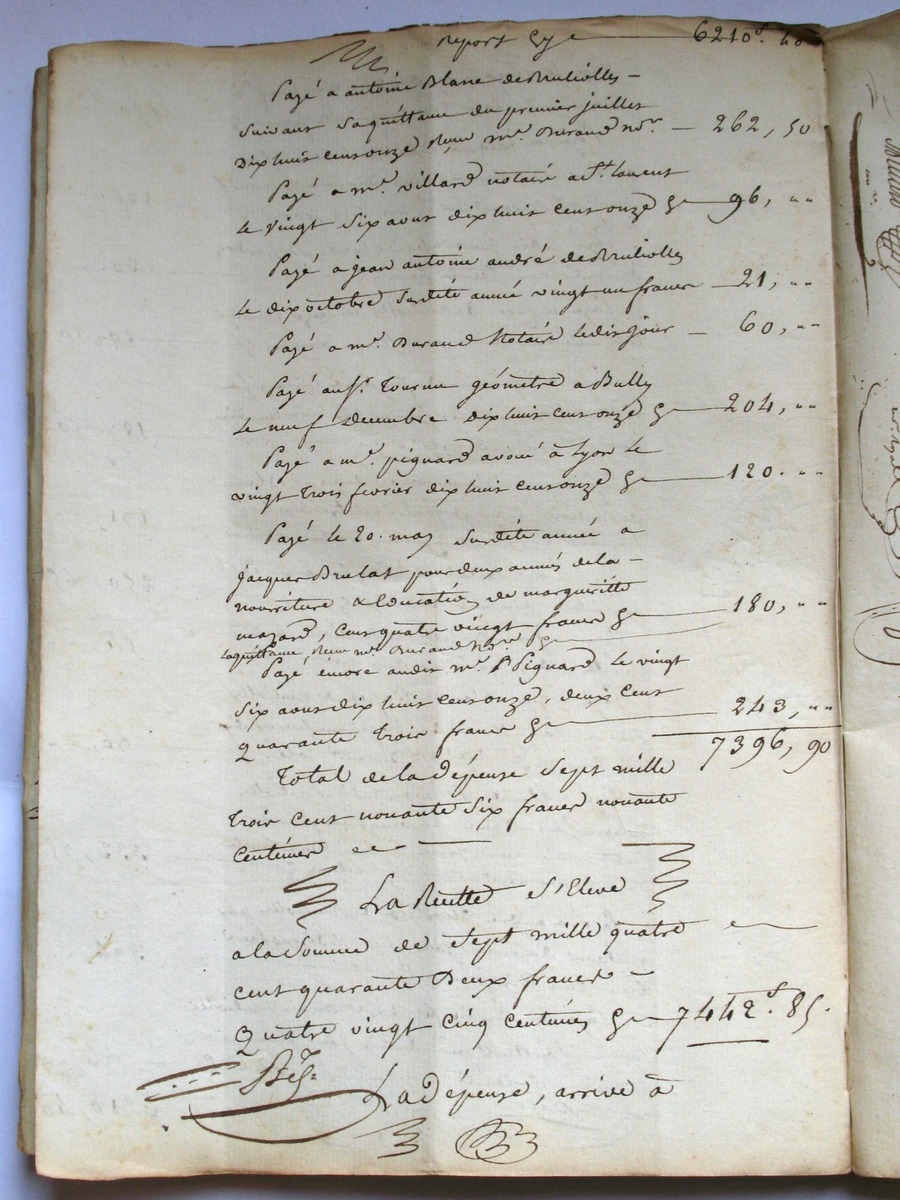 Report Cy 6210f. 40
Payé a antoine Blanc de Bruliolles -
Suivant Saquittance du premier juillet
Dixhuit censonze Reçue me. Durand Nre. - 262, 50
Payé a me. villard notaire a St. laurent
le vingt Six aout dix huit cent onze Cy 96, ""
Payé a jean antoine andré de Brulliolles
le dix octobre Susdite année vingt un francs - 21, ""
Payé a me. Durand Notaire ledit jour - 60, ""
Payé au Sr. Tournu géometre a Bully
le neuf Décembre dix huit cent onze Cy 204, ""
Payé a me. pignard avoué à Lyon le
vingt trois fevrier dix huit censonze Cy 120. ""
Payé le 20. may Susdite année a
jacques Brulat pour deux années dela -
nourriture & Education de margueritte
mazard, cens quatre vingt francs Cy 180, ""
laquittance Reçue me. Durand Nre. Cy
Payé éncore audit me. Pignard le vingt
Six aout dix huit censonze, deux cent
quarante trois francs Cy 243, ""
7396, 90
Total de la Dépense Sept mille
trois cent nonante Six francs nonante
centimes
La Recette S'Eleve
a la Somme de Sept mille quatre
cent quarante Deux francs -
Quatre vingt cinq centimes Cy 7442f. 85.
La Dépense, arrive à